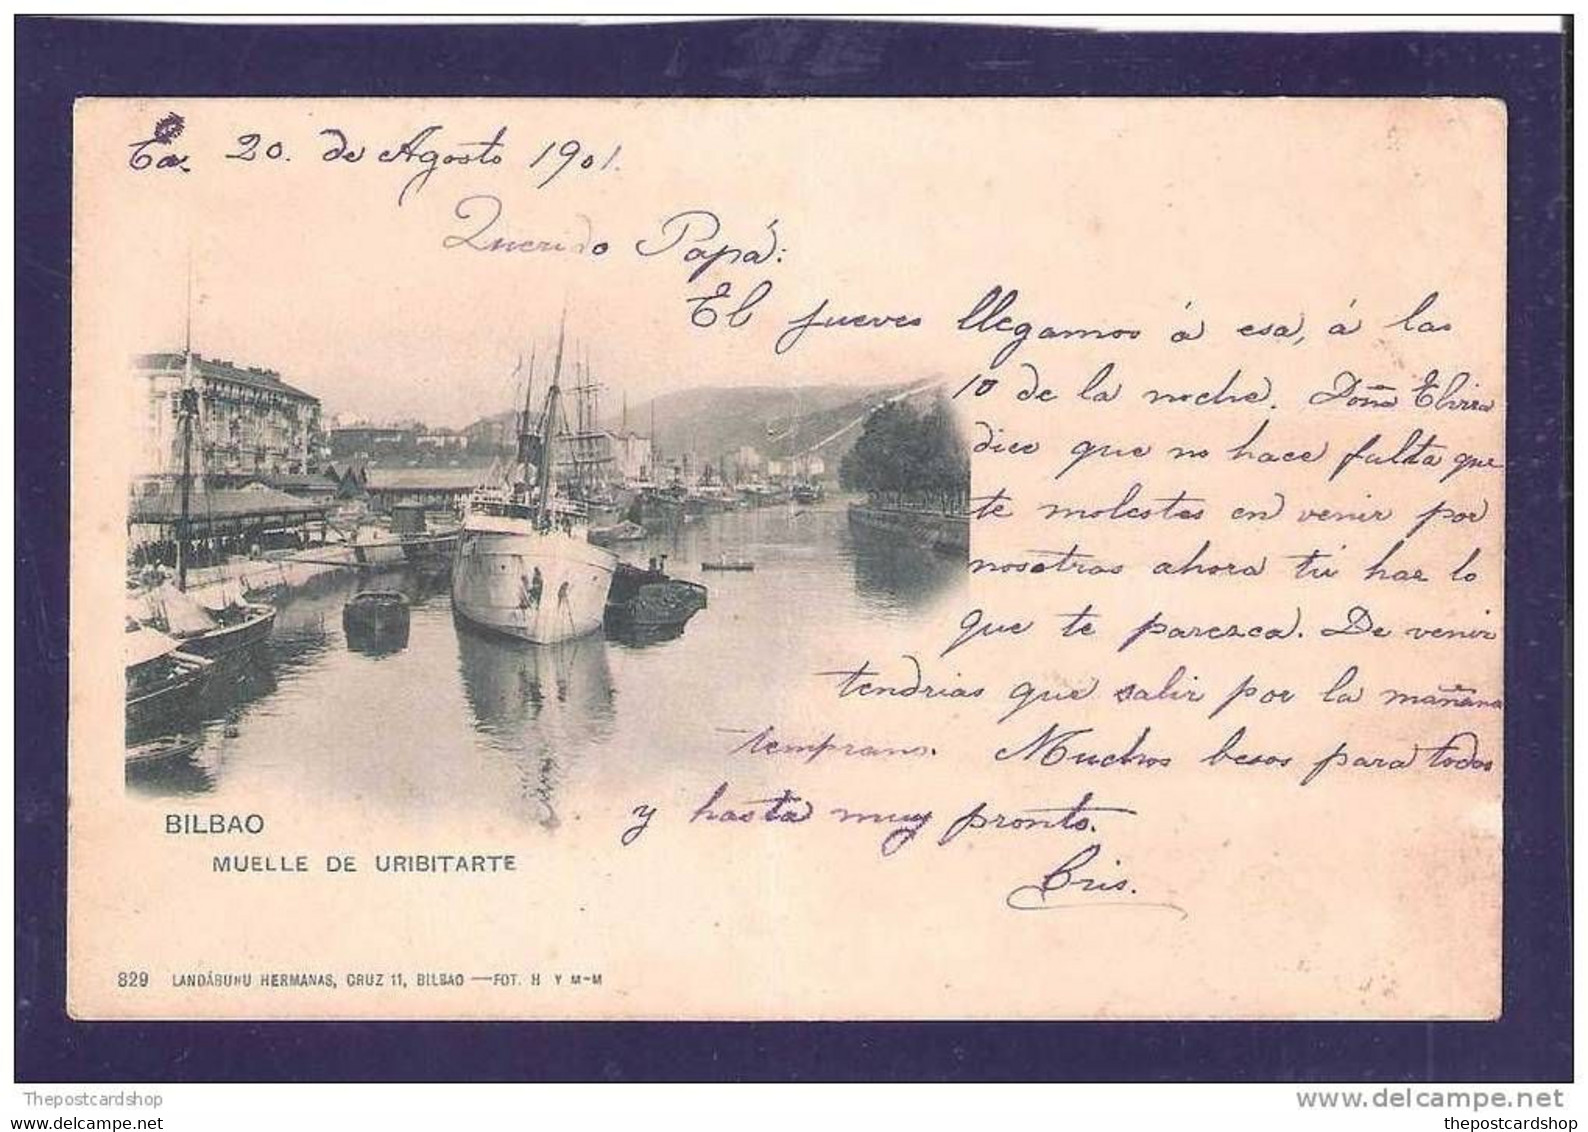 Ea. 20. de Agosto 1901.
Querido Papá:
El jueves llegamos á esa, á las
10 de la noche. Doña Elvira
dice que no hace falta que
te molestes en venir por
nosotras ahora tú haz lo
que te parezca. De venir
tendrias que salir por la mañana
temprano. Muchos besos para todos
y hasta muy pronto.
Cris.
BILBAO
MUELLE DE URIBITARTE
829 LANDÁBURU HERMANAS, CRUZ 11, BILBAO — FOT. H Y M-M
Thepostcardshop
www.delcampe.net
the postcard shop
thepostcardshop